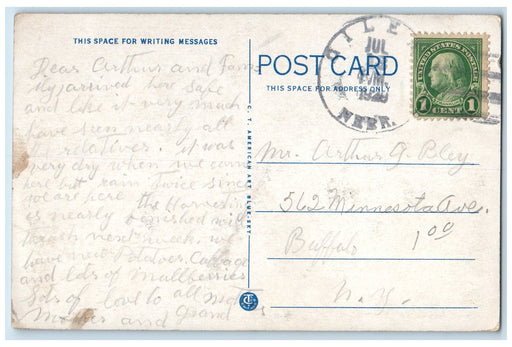 THIS SPACE FOR WRITING MESSAGES
Dear Arthur and Fam
ily arrived here safe
and like it very much
have seen nearly all
relatives. it was
very dry when we came
here but rain twice since
we are here the Harvest
is nearly will
thrash next week. we
have new Potatoes. Cabbage
and lots of Mullberries
Lots of love to all
Mother and Grand
C. T. AMERICAN ART BLUE SKY
POST CARD
THIS SPACE FOR ADDRESS ONLY
JUL
P.M.
NEBR.
UNITED STATES POSTAGE
1 CENT 1
Mr. Arthur G. Bley
562 Minnesota Ave.
Buffalo
1 00
N. Y.